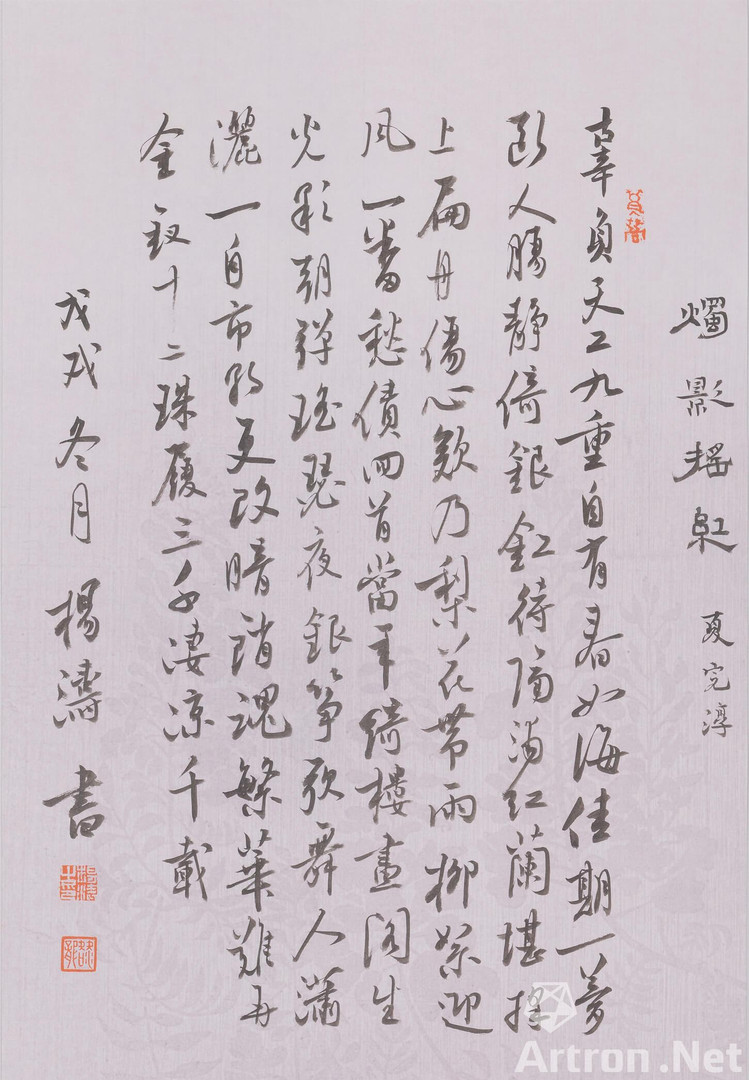 燭影搖紅 夏完淳
辜負天工九重自有春如海佳期一夢
斷人腸靜倚銀釭待隔浦紅蘭堪採
上扁舟傷心欸乃梨花帶雨柳絮迎
風一番愁債回首當年綺樓畫閣生
光彩朝彈瑤瑟夜銀箏歌舞人瀟
灑一自市朝更改暗銷魂繁華難再
金釵十二珠履三千淒涼千載
戊戌冬月 楊濤書
Artron.Net